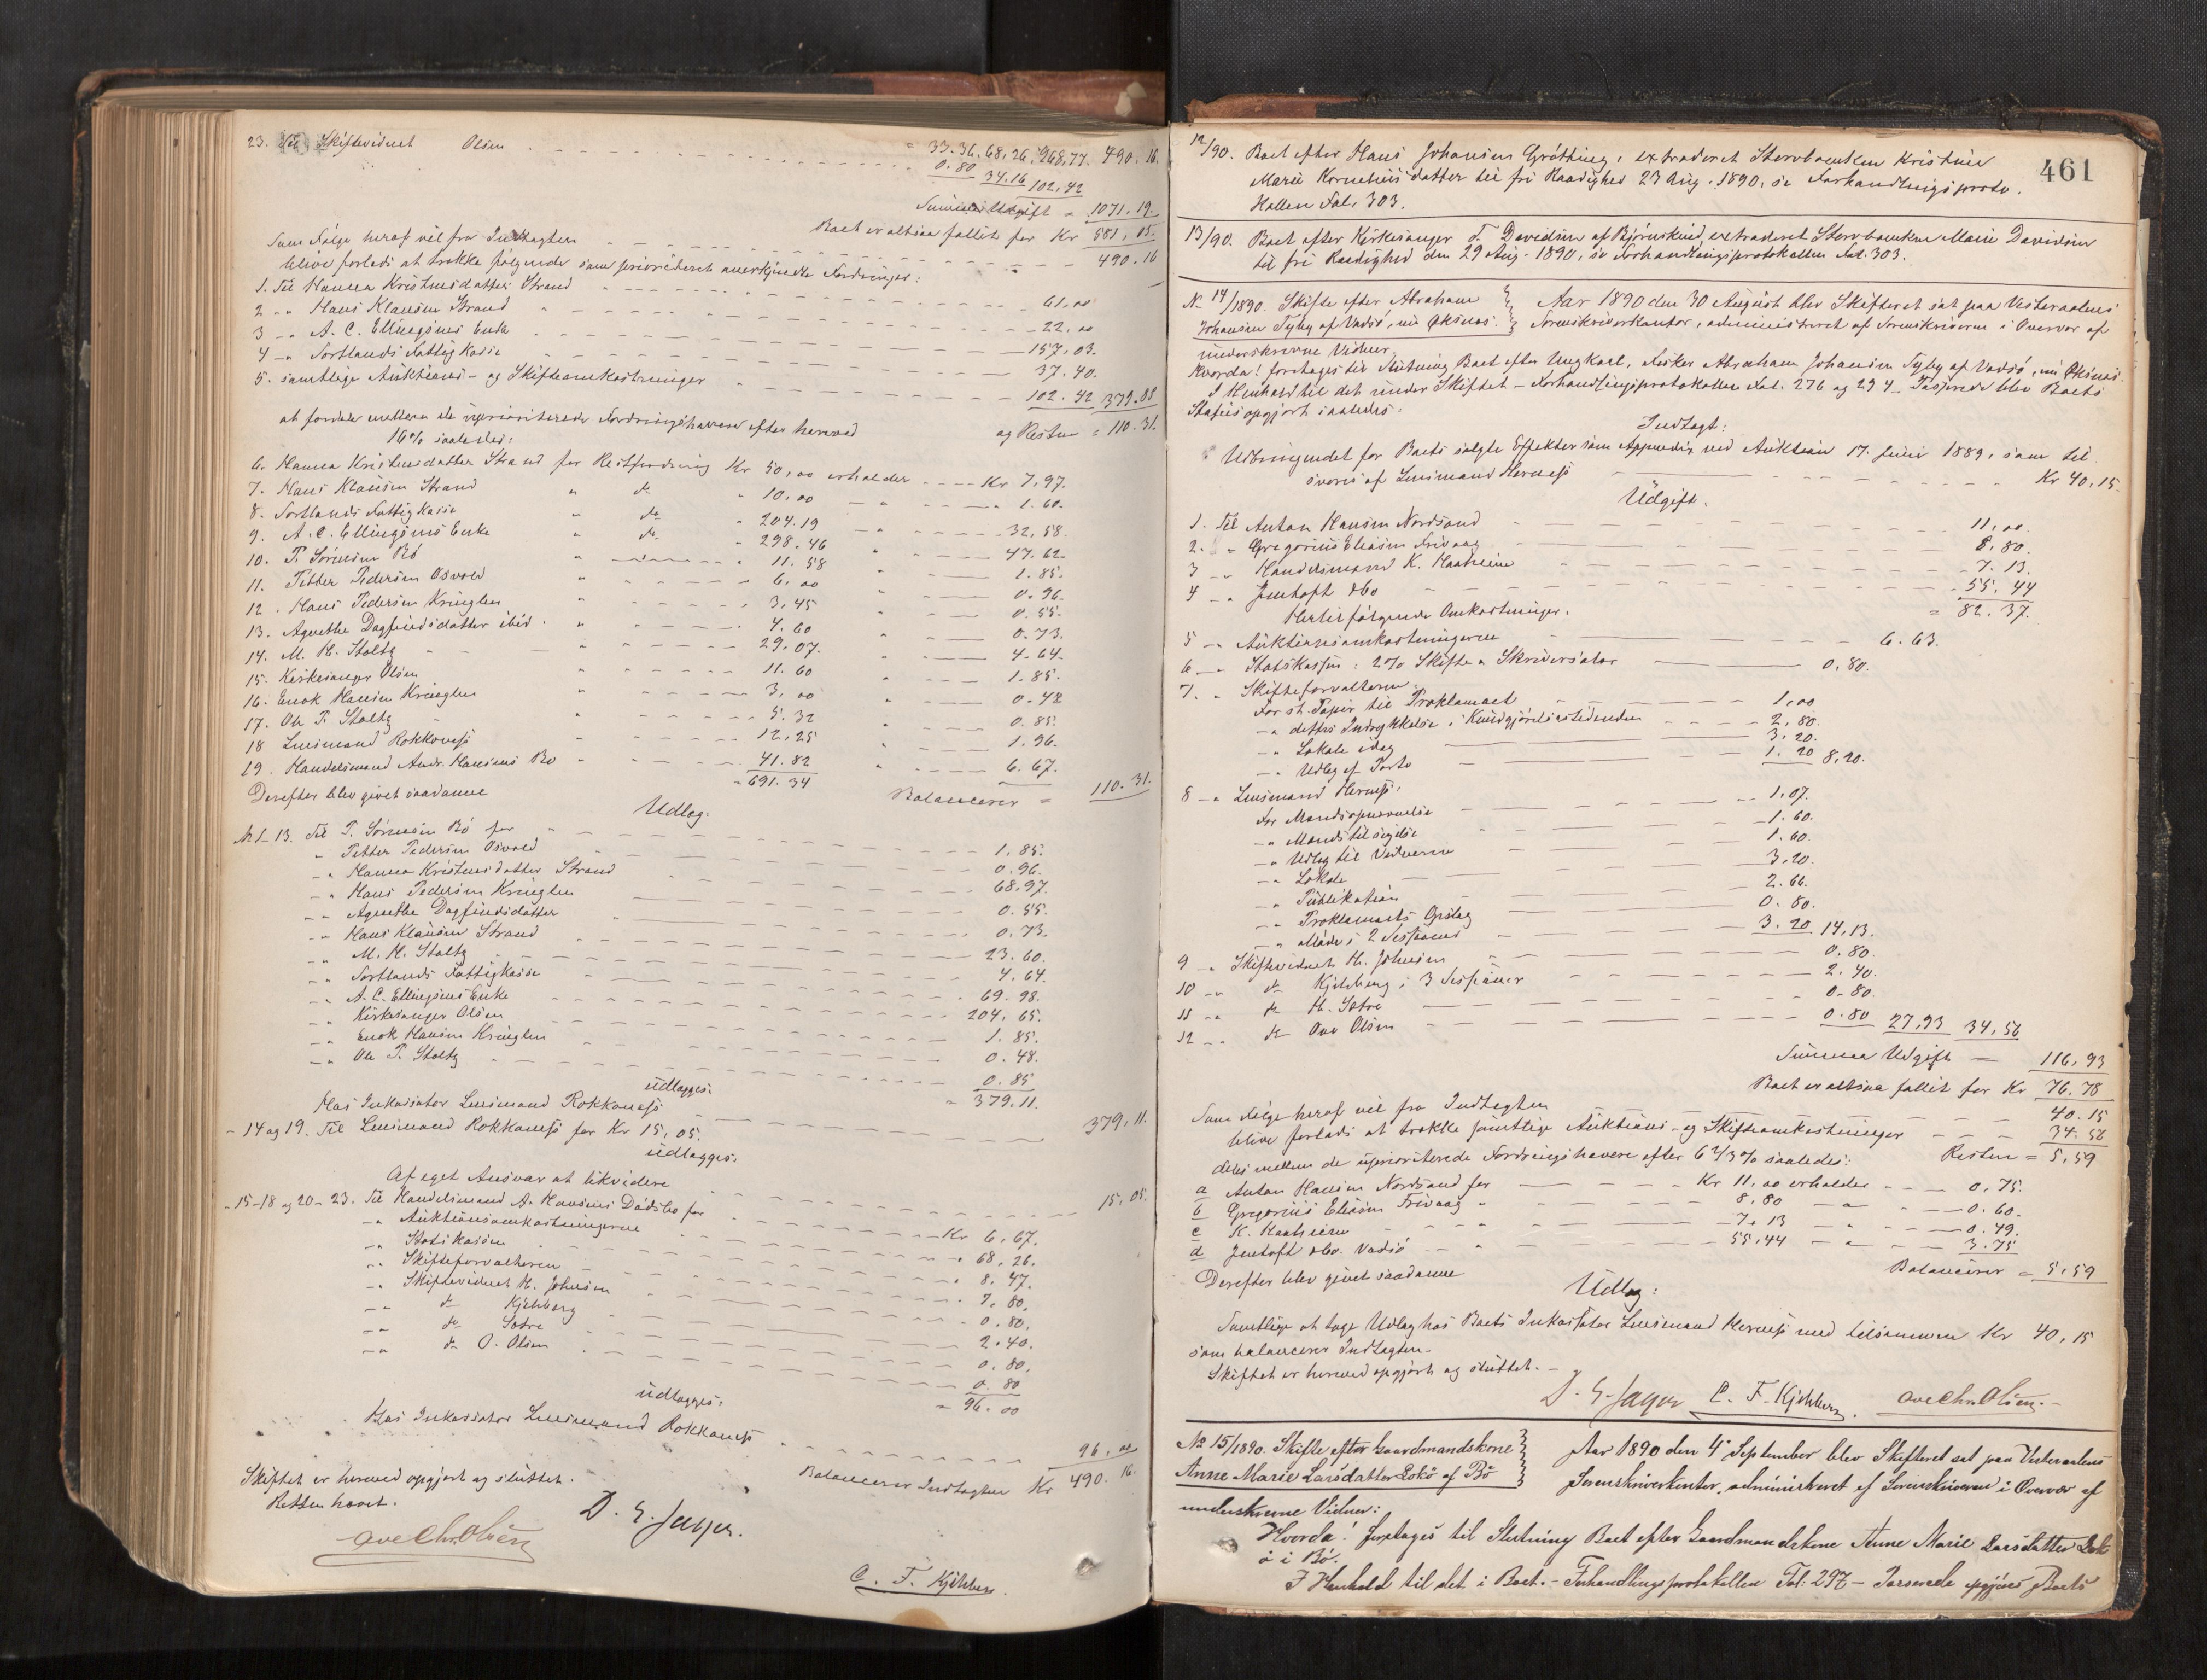 23. Til Skiftevidnet Olsen - - - " 33.36. 68,26. 968,77. 490.16.
0.80 34.16 102.42
Summa Udgift = 1071.19.
Boet er altsaa fallit for Kr 581.03.
Som Følge heraf vil fra Indtægten - - - 490.16
blive forlods at trække følgende som prioriteret anerkjendte Fordringer:
1. Til Hanna Kristensdatter Strand - - - 61,00
2 -" Hans Klausen Strand - - - 22,00
3 -" A. C. Ellingsens Enke - - - 157,03.
4 -" Sortlands Fattigkasse - - - 37.40.
5. samtlige Auktions- og Skifteomkostninger - - - 102.42 379.85
og Resten = 110.31.
at fordele mellem de uprioriterede Fordringshavere efter herved
16% saaledes:
6. Hanna Kristensdatter Strand for Restfordring Kr 50,00 erholder - - - Kr 7,97.
7. Hans Klausen Strand " do " 10,00 - - 1.60.
8. Sortlands Fattigkasse " do " 204.19 - - 32,58.
9. A. C. Ellingsens Enke " do " 298,46 - - 47.62.
10. P. Sørensen Bø " 11.58 - - 1.85.
11. Petter Pedersen Osvold " 6,00 - - 0.96.
12. Hans Pedersen Kringlen " 3,45 - - 0.55.
13. Agnethe Dagfindsdatter ibid. " 4.60 - - 0.73.
14. M. H. Stoltz " 29,07. - - 4.64.
15. Kirkesanger Olsen " 11.60 - - 1.85.
16. Enok Hansen Kringlen " 3,00 - - 0.48
17. Ole P. Stoltz " 5.32 - - 0.85.
18 Lensmand Rokkones " 12,25 - - 1.96.
19. Handelsmand Andr. Hansens Bo " 41.82 - - 6.67.
= 691.34 Balancerer = 110.31.
Derefter blev givet saadanne
Udlæg:
No 1-13. Til P. Sørensen Bø for - - - 1,85.
" Petter Pedersen Osvold - - - 0.96.
-" Hanna Kristensdatter Strand - - - 68.97.
-" Hans Pedersen Kringlen - - - 0.55.
-" Agnethe Dagfindsdatter - - - 0.73.
-" Hans Klausen Strand - - - 23.60.
-" M. H. Stoltz - - - 4.64.
-" Sortlands Fattigkasse - - - 69.98.
-" A. C. Ellingsens Enke - - - 204,65.
-" Kirkesanger Olsen - - - 1.85.
-" Enok Hansen Kringlen - - - 0.48.
-" Ole P. Stoltz - - - 0.85
udlægges: = 379.11.
Hos Inkassator Lensmand Rokkones - - - 379,11.
- 14 og 19. Til Lensmand Rokkones for Kr 15,05.
udlægges:
Af eget Ansvar at likvidere - - - 15,05.
" 15-18 og 20-23. Til Handelsmand A. Hansens Dødsbo for - - - Kr 6,67.
-" Auktionsomkostningerne - - - " 68,26.
-" Statskassen - - - " 8.47.
-" Skifteforvalteren - - - " 7.80.
-" Skiftevidnet H. Johnsen - - - 0.80.
-" do Kjelsberg - - - 2.40.
-" do Sætre - - - 0.80.
-" do O. Olsen - - - 0.80
udlægges: = 96.00
Hos Inkassator Lensmand Rokkones - - - 96,00
Balancerer Indtægten Kr 490.16.
Skiftet er hermed opgjort og sluttet.
Retten hævet.
D. E. Jager.
Ove Chr. Olsen
C. F. Kjelsberg.
461
12/90. Boet efter Hans Johansen Grøtting, extraderet Stervboenken Kristine
Marie Korneliusdatter til fri Raadighed 23 Aug. 1890, se Forhandlingsproto.
kollen Fol. 303.
13/90. Boet efter Kirkesanger T. Davidsen af Bjørnskind, extraderet Stervboenken Marie Davidsen
til fri Raadighed den 29 Aug. 1890, se Forhandlingsprotokollen Fol. 303.
No 14/1890. Skifte efter Abraham
Johansen Tyby af Vadsø, nu Øksnes.
Aar 1890 den 30 August blev Skifteret sat paa Vesteraalens
Sorenskriverkontor, administreret af Sorenskriveren i Overvær af
underskrevne Vidner.
Hvorda! foretages til Slutning Boet efter Ungkarl, Fisker Abraham Johansen Tyby af Vadsø, nu Øksnes.
I Henhold til det under Skiftet - Forhandlingsprotokollen Fol. 276 og 294 - Passerede blev Boets
Status opgjort saaledes:
Indtægt:
Udbringendet for Boets solgte Effekter som Appendix ved Auktion 17. Juni 1889, som til
svares af Lensmand Hernes - - - Kr 40,15.
Udgift.
1. Til Anton Hansen Nordsand - - - 11,00.
2. " Gregorius Eliasen Frivaag - - - 8,80.
3 -" Handelsmand K. Haaheim - - - 7.13.
4 -" Jentoft dbo - - - 55,44
Hertil følgende Omkostninger. = 82.37.
5 -" Auktionsomkostningerne - - - 6.63.
6 -" Statskassen: 2% Skifte- & Skriversalær - - - 0,80.
7. " Skifteforvalteren
For st. Papir til Proklamaet - - - 1,00
-" dettes Indrykkelse i Kundgjørelsestidenden - - - 2,80.
-" Lokale idag - - - 3.20.
-" Udlæg af Porto - - - 1.20 8,20.
8 -" Lensmand Hernes:
For Mandsopnævnelse - - - 1.07.
-" Mænds tilsigelse - - - 1.60.
-" Udlæg til Vidnerne - - - 1.60.
-" Lokale - - - 3.20.
-" Publikation - - - 2.66.
-" Proklamaets Opslag - - - 0.80.
-" Møde i 2 Sessioner - - - 3.20 14,13.
9 -" Skiftevidnet H. Johnsen - - - 0.80.
10 -" do Kjelsberg i 3 Sessioner - - - 2.40.
11 -" do H. Sætre - - - 0.80.
12 -" do Ove Olsen - - - 0.80 27,93 34,56
Summa Udgift - 116,93
Boet er altsaa fallit for Kr 76.78
Som Følge heraf vil fra Indtægten - - - 40.15
blive forlods at trække samtlige Auktions- og Skifteomkostninger - - - 34.56
Resten = 5,59
deles mellem de uprioriterede Fordringshavere efter 6 2/3 % saaledes:
a Anton Hansen Nordsand for - - - Kr 11,00 erholder - - - 0,75.
b Gregorius Eliasen Frivaag " - - - 8,80 -"- - - 0.60.
c K. Haaheim - - - 7.13 -"- - - 0.49.
d Jentoft dbo. Vadsø - - - 55,44 -"- - - 3.75
Balancerer = 5,59
Derefter blev givet saadanne
Udlæg:
Samtlige at tage Udlæg hos Boets Inkassator Lensmand Hernes med tilsammen Kr 40,15
som balancerer Indtægten.
Skiftet er hermed opgjort og sluttet. -
D. E. Jager C. F. Kjelsberg. Ove Chr. Olsen.-
No 15/1890. Skifte efter Gaardmandskone
Anne Marie Larsdatter Lokø af Bø
Aar 1890 den 4de September blev Skifteret sat paa Vesteraalens
Sorenskriverkontor, administreret af Sorenskriveren i Overvær af
underskrevne Vidner:
Hvorda! foretages til Slutning Boet efter Gaardmandskone Anne Marie Larsdatter Lok
ø i Bø.
I Henhold til det i Boet. - Forhandlingsprotokollen Fol: 297 - Passerede opgjøres Boets